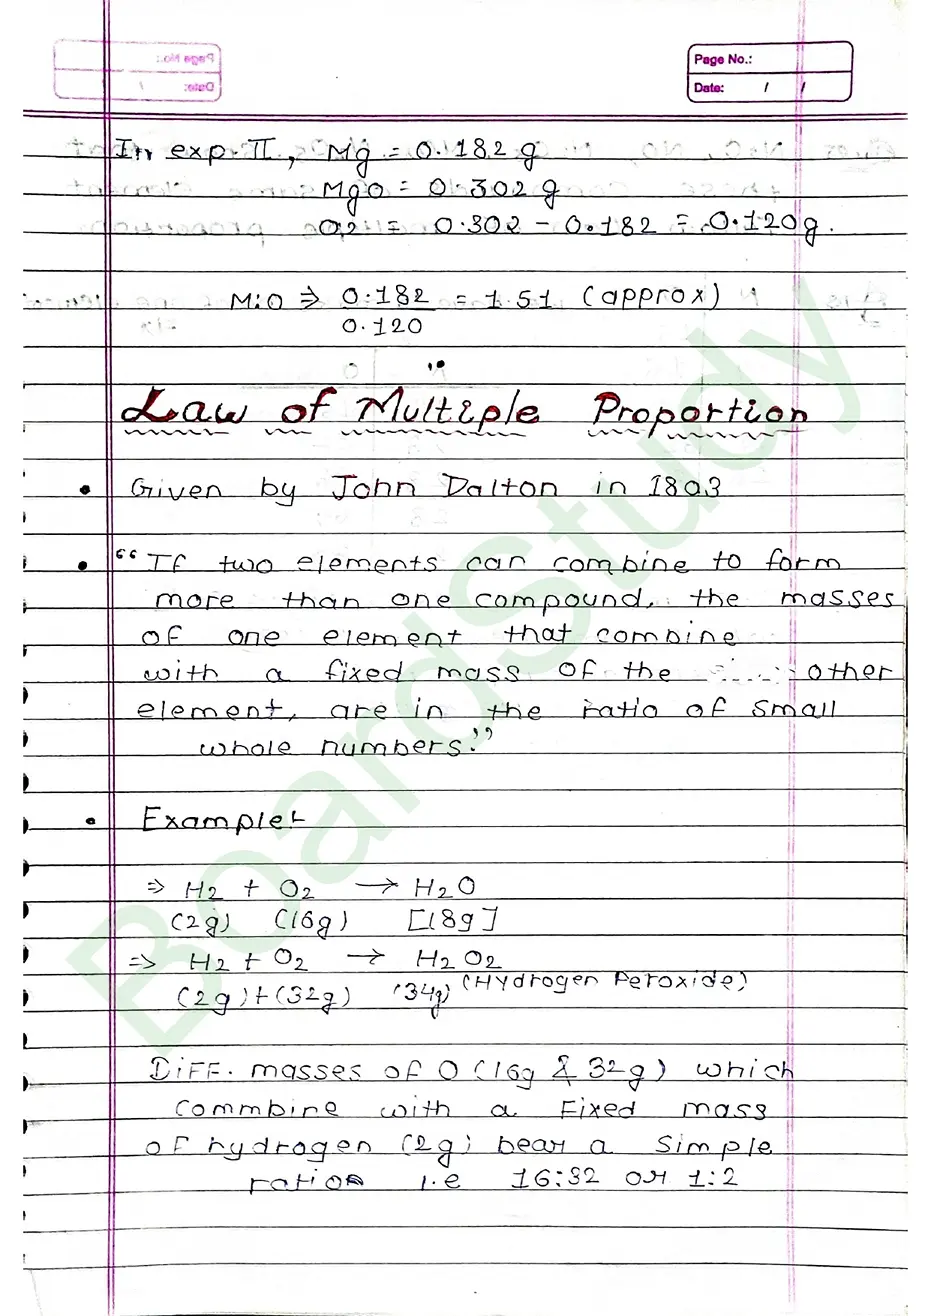 Page No.:
Date: / /
In exp. II, Mg = 0.182 g
MgO = 0.302 g
O2 = 0.302 - 0.182 = 0.120g.
M:O ⇒ 0.182 = 1.51 (approx)
0.120
Law of Multiple Proportion
• Given by John Dalton in 1803
• "If two elements can combine to form
more than one compound, the masses
of one element that combine
with a fixed mass of the other
element, are in the ratio of small
whole numbers."
• Example:-
⇒ H2 + O2 → H2O
(2g) (16g) [18g]
⇒ H2 + O2 → H2O2
(2g)+(32g) (34g) (Hydrogen Peroxide)
Diff. masses of O (16g & 32g) which
Commbine with a Fixed mass
of hydrogen (2g) bear a Simple
ratio i.e 16:32 or 1:2
BoardStudy